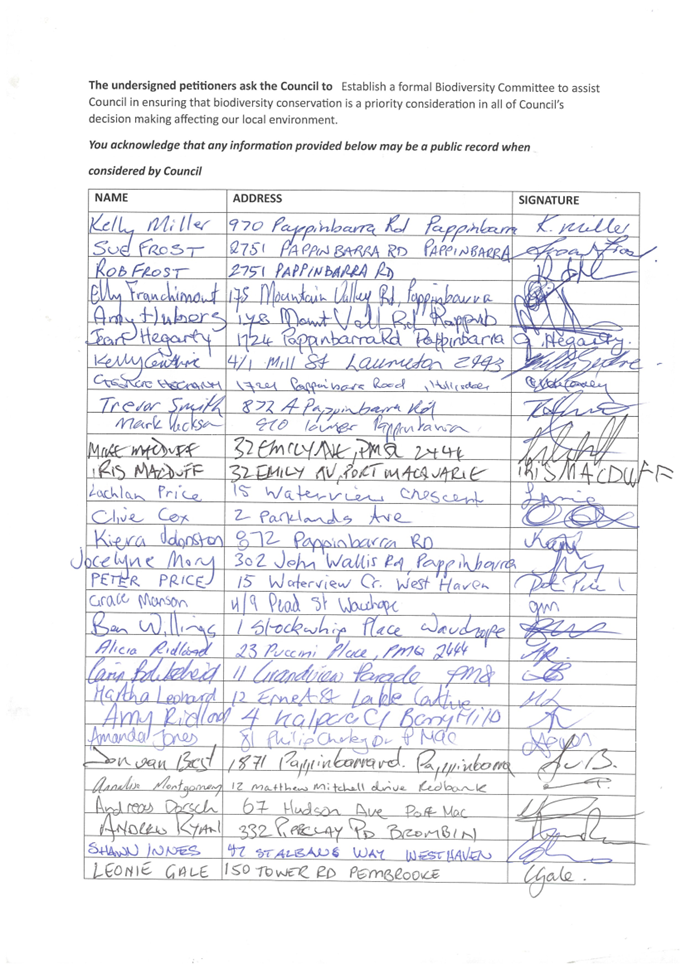 The undersigned petitioners ask the Council to Establish a formal Biodiversity Committee to assist
Council in ensuring that biodiversity conservation is a priority consideration in all of Council's
decision making affecting our local environment.
You acknowledge that any information provided below may be a public record when
considered by Council
NAME ADDRESS SIGNATURE
Kelly Miller 970 Pappinbarra Rd Pappinbarra K. Miller
SUE FROST 2751 PAPPINBARRA RD PAPPINBARRA
ROB FROST 2751 PAPPINBARRA RD
Elly Franchimont 175 Mountain Valley Rd, Pappinbarra
Amy Hubers 178 Mount Vall Rd Pappinb
Hegarty 1724 Pappinbarra Rd Pappinbarra Hegarty.
Kelly 4/1 Mill St Laurieton 2443
Pappinbarra Road
Trevor Smith 872 A Pappinbarra Rd
Mark lower Pappinbarra
MIKE MACDUFF 32 EMILY AVE, PMQ 2444
IRIS MACDUFF 32 EMILY AV, PORT MACQUARIE IRIS MACDUFF
Lachlan Price 15 Waterview Crescent
Clive Cox 2 Parklands Ave
Kiera 872 Pappinbarra RD
Jocelyne Mory 302 John Wallis Rd, Pappinbarra
PETER PRICE 15 Waterview Cr. West Haven
Grace Monson 4/9 St Wauchope gm
Ben Willings 1 Stockwhip Place
Alicia Ridland 23 Puccini Place, PMQ 2444
11 Grandview Parade PMQ
Martha Leonard 12 Ernest St Lake
Amy Ridland 4 Kalpara Cl
Amanda Jones 81 Philip Dr P Mac
Jon van Best 1871 Pappinbarra rd. Pappinbarra
Annalise Montgomery 12 Matthew Mitchell drive Redbank
Andreas Dorsch 67 Hudson Ave Port Mac
ANDREW RYAN 332 RD BROMBIN
SHAWN INNES 42 ST ALBANS WAY WESTHAVEN
LEONIE GALE 150 TOWER RD PEMBROOKE LGale.